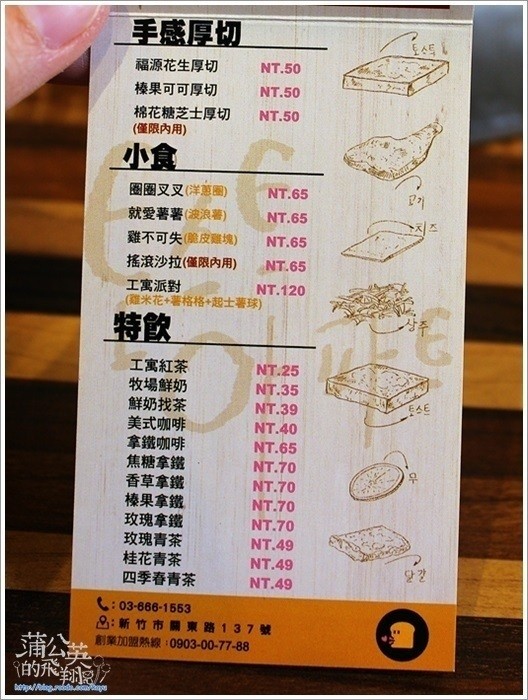 手感厚切
福源花生厚切 NT.50
榛果可可厚切 NT.50
棉花糖芝士厚切 NT.50
(僅限內用)
小食
圈圈叉叉(洋蔥圈) NT.65
就愛薯薯(波浪薯) NT.65
雞不可失(脆皮雞塊) NT.65
搖滾沙拉(僅限內用) NT.65
工寓派對 NT.120
(雞米花+薯格格+起士薯球)
特飲
工寓紅茶 NT.25
牧場鮮奶 NT.35
鮮奶找茶 NT.39
美式咖啡 NT.40
拿鐵咖啡 NT.65
焦糖拿鐵 NT.70
香草拿鐵 NT.70
榛果拿鐵 NT.70
玫瑰拿鐵 NT.70
玫瑰青茶 NT.49
桂花青茶 NT.49
四季春青茶 NT.49
토스트
고기
치즈
상추
토스트
무
달걀
: 03-666-1553
: 新竹市關東路137號
創業加盟熱線 : 0903-00-77-88
蒲公英
的飛翔